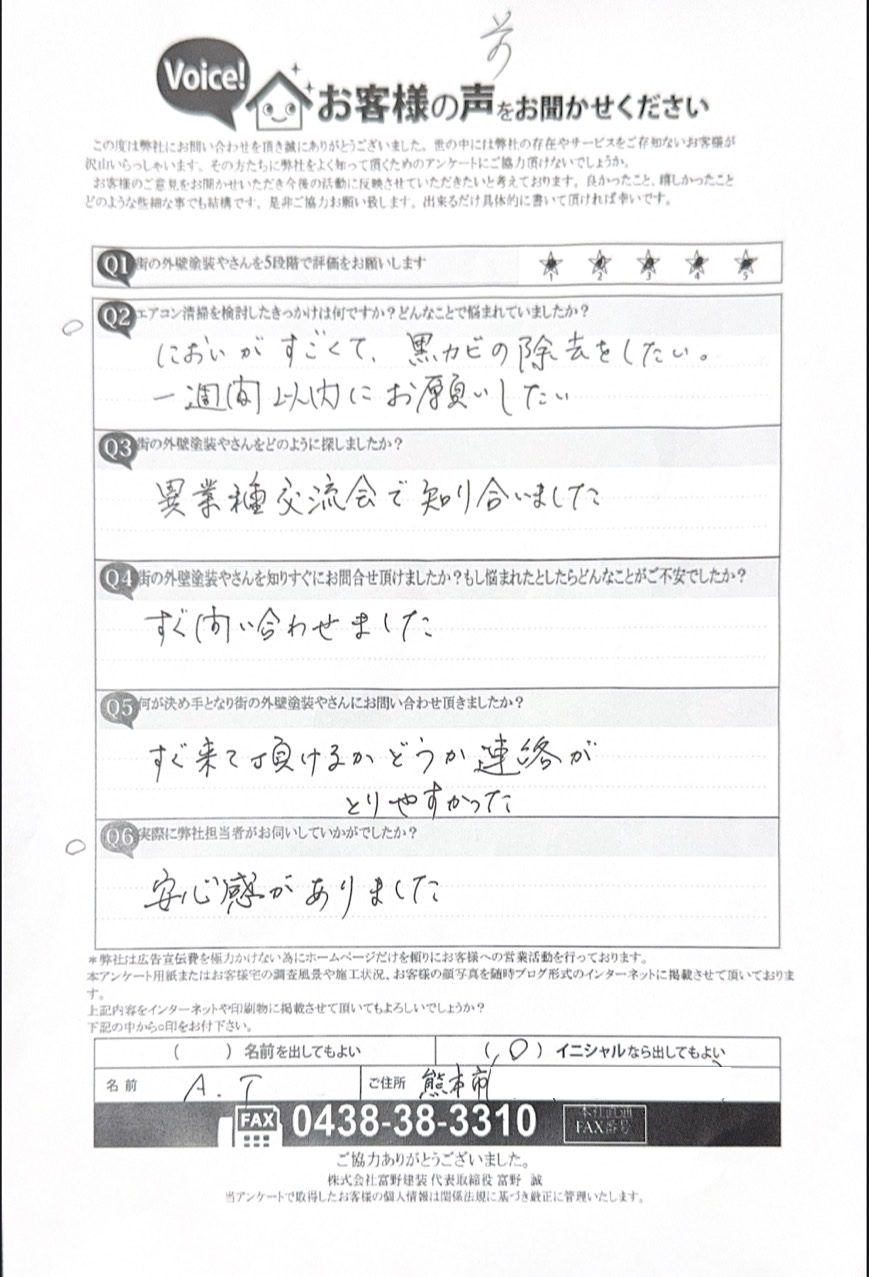 前
Voice!
お客様の声をお聞かせください
この度は弊社にお問い合わせを頂き誠にありがとうございました。世の中には弊社の存在やサービスをご存知ないお客様が
沢山いらっしゃいます。その方たちに弊社をよく知って頂くためのアンケートにご協力頂けないでしょうか。
お客様のご意見をお聞かせいただき今後の活動に反映させていただきたいと考えております。良かったこと、嬉しかったこと
どのような些細な事でも結構です。是非ご協力お願い致します。出来るだけ具体的に書いて頂ければ幸いです。
Q1 街の外壁塗装やさんを5段階で評価をお願いします
1 2 3 4 5
Q2 エアコン清掃を検討したきっかけは何ですか?どんなことで悩まれていましたか?
においがすごくて、黒カビの除去をしたい。
一週間以内にお願いしたい
Q3 街の外壁塗装やさんをどのように探しましたか?
異業種交流会で知り合いました
Q4 街の外壁塗装やさんを知りすぐにお問合せ頂けましたか?もし悩まれたとしたらどんなことがご不安でしたか?
すぐ問い合わせました
Q5 何が決め手となり街の外壁塗装やさんにお問い合わせ頂きましたか?
すぐ来て頂けるかどうか連絡が
とりやすかった
Q6 実際に弊社担当者がお伺いしていかがでしたか?
安心感がありました
*弊社は広告宣伝費を極力かけない為にホームページだけを頼りにお客様への営業活動を行っております。
本アンケート用紙またはお客様宅の調査風景や施工状況、お客様の顔写真を随時ブログ形式のインターネットに掲載させて頂いておりま
す。
上記内容をインターネットや印刷物に掲載させて頂いてもよろしいでしょうか?
下記の中から○印をお付下さい。
( ) 名前を出してもよい (○) イニシャルなら出してもよい
名前 A.T ご住所 熊本市
FAX 0438-38-3310 本社直通
FAX番号
ご協力ありがとうございました。
株式会社富野建装 代表取締役 富野 誠
当アンケートで取得したお客様の個人情報は関係法規に基づき厳正に管理いたします。